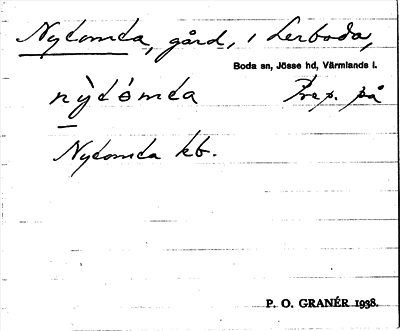 Nytomta, gård, i Lerboda,
Boda sn, Jösse hd, Värmlands l.
nỳtómta Prep. på
Nytomta kb.
P. O. GRANÉR 1938.